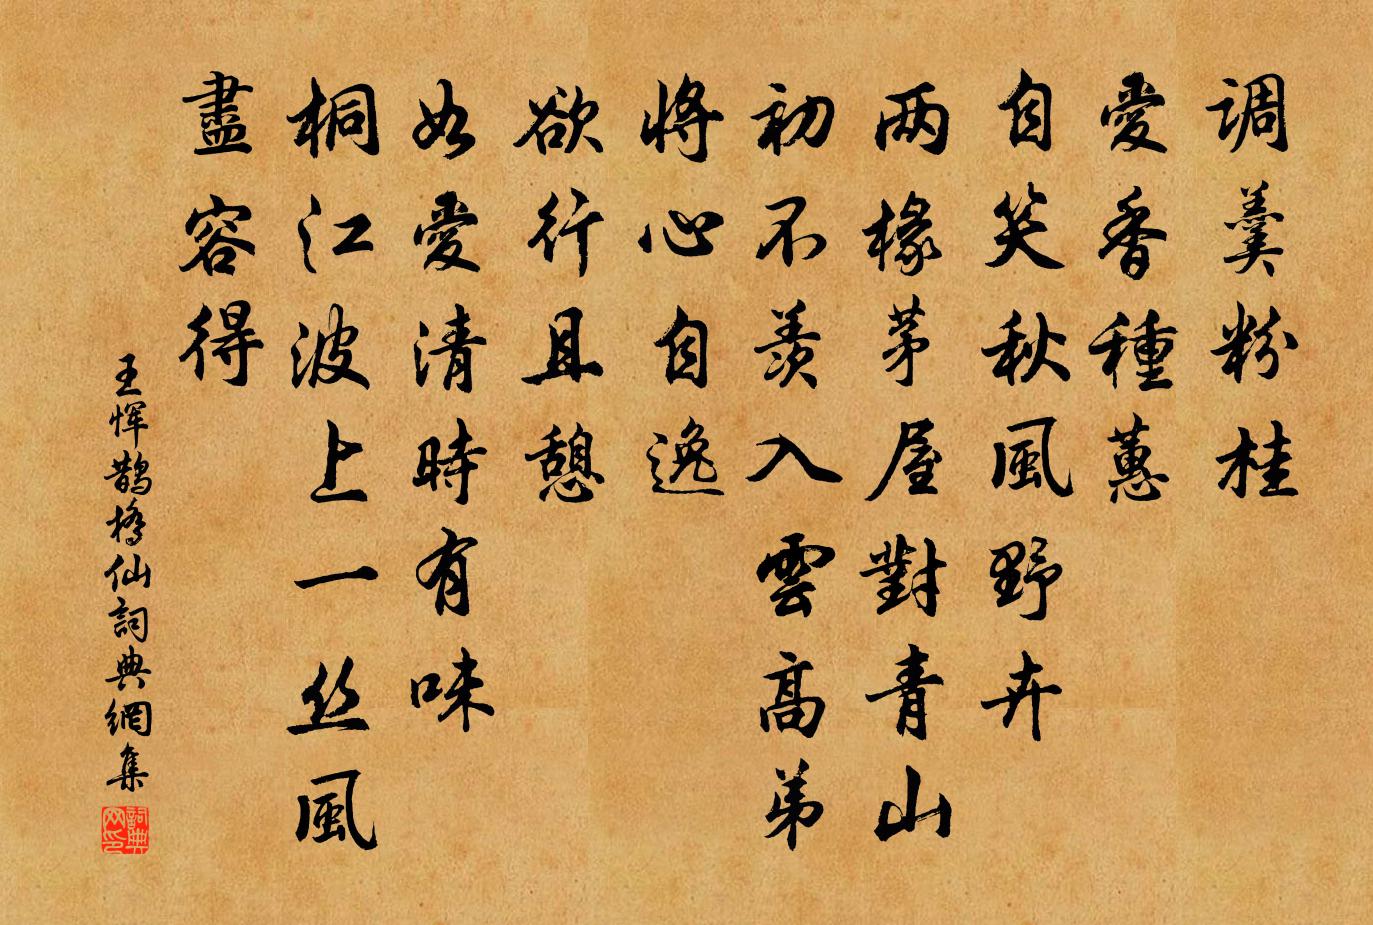 调羹粉桂
愛香種蕙
自笑秋風野卉
两椽茅屋對青山
初不羨入雲高弟
將心自逸
欲行且憩
如愛清時有味
桐江波上一丝風
盡容得
王恽鵲橋仙詞典網集
詞典
网印